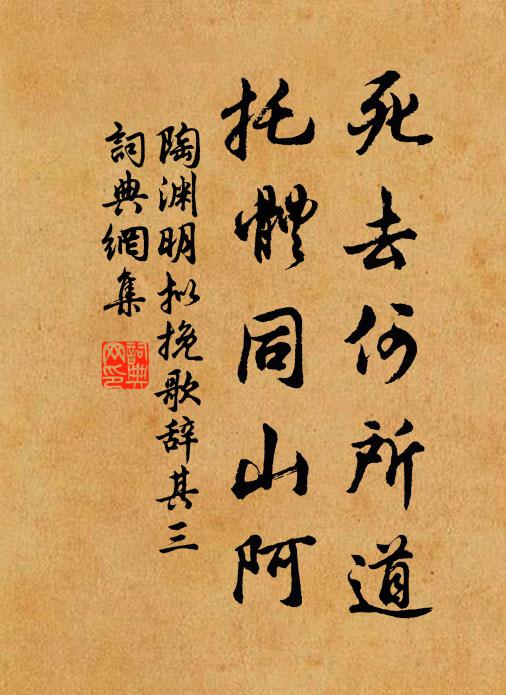 死去何所道
托體同山阿
陶渊明拟挽歌辞其三
詞典網集
詞典網印